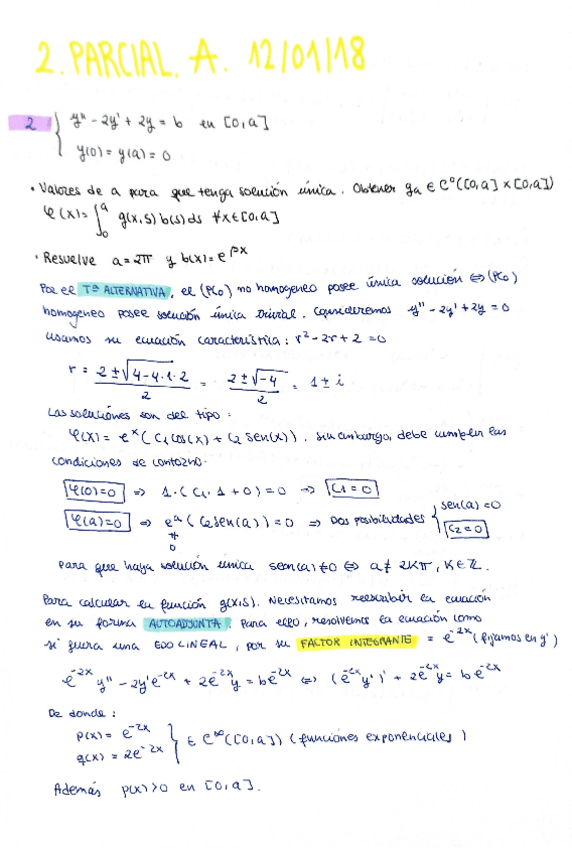 2. PARCIAL. A. 12/01/18
2 { y'' - 2y' + 2y = b en [0,a]
y(0) = y(a) = 0
• Valores de a para que tenga solución única. Obtener ga ∈ C⁰([0,a]×[0,a])
φ(x) = ∫₀ᵃ g(x,s) b(s) ds ∀x∈[0,a]
• Resuelve a = 2π y b(x) = e^{βx}
Por el Tª ALTERNATIVA, el (PC₀) no homogeneo posee única solución ⇔ (PC₀)
homogeneo posee solución única trivial. Consideremos y'' - 2y' + 2y = 0
usamos su ecuación característica: r² - 2r + 2 = 0
r = (2 ± √(4-4·1·2))/2 = (2 ± √-4)/2 = 1 ± i
Las soluciones son del tipo:
φ(x) = eˣ (C₁cos(x) + C₂ sen(x)). Sin embargo, debe cumplir las
condiciones de contorno.
φ(0)=0 ⇒ 1·(C₁·1 + 0) = 0 ⇒ C₁=0
φ(a)=0 ⇒ eᵃ (C₂sen(a)) = 0 ⇒ Dos posibilidades { sen(a) = 0
≠ 0
C₂=0
Para que haya solución única sen(a) ≠ 0 ⇔ a ≠ 2kπ, k∈Z.
Para calcular la función g(x,s). Necesitamos reescribir la ecuación
en su forma AUTOADJUNTA. Para ello, resolvemos la ecuación como
si fuera una EDO LINEAL, por su FACTOR INTEGRANTE = e^{-2x} (fijamos en y')
e^{-2x} y'' - 2y'e^{-2x} + 2e^{-2x}y = be^{-2x} ⇔ (e^{-2x}y')' + 2e^{-2x}y = be^{-2x}
De donde:
p(x) = e^{-2x}
q(x) = 2e^{-2x} } ∈ C^∞([0,a]) (funciones exponenciales)
Además p(x) > 0 en [0,a].